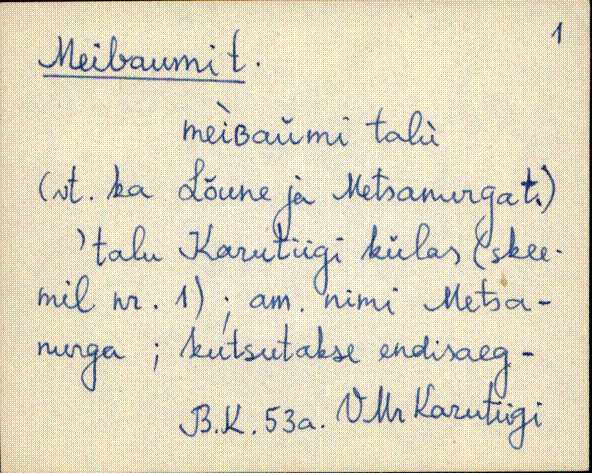 1
Meibaumi t.
mèiʙaŭmi talù
(vt. ka Lõune ja Metsanurga t.)
’talu Karutiigi külas (skee-
mil nr. 1); am. nimi Metsa-
nurga; kutsutakse endisaeg-
B.K. 53a. VMr Karutiigi